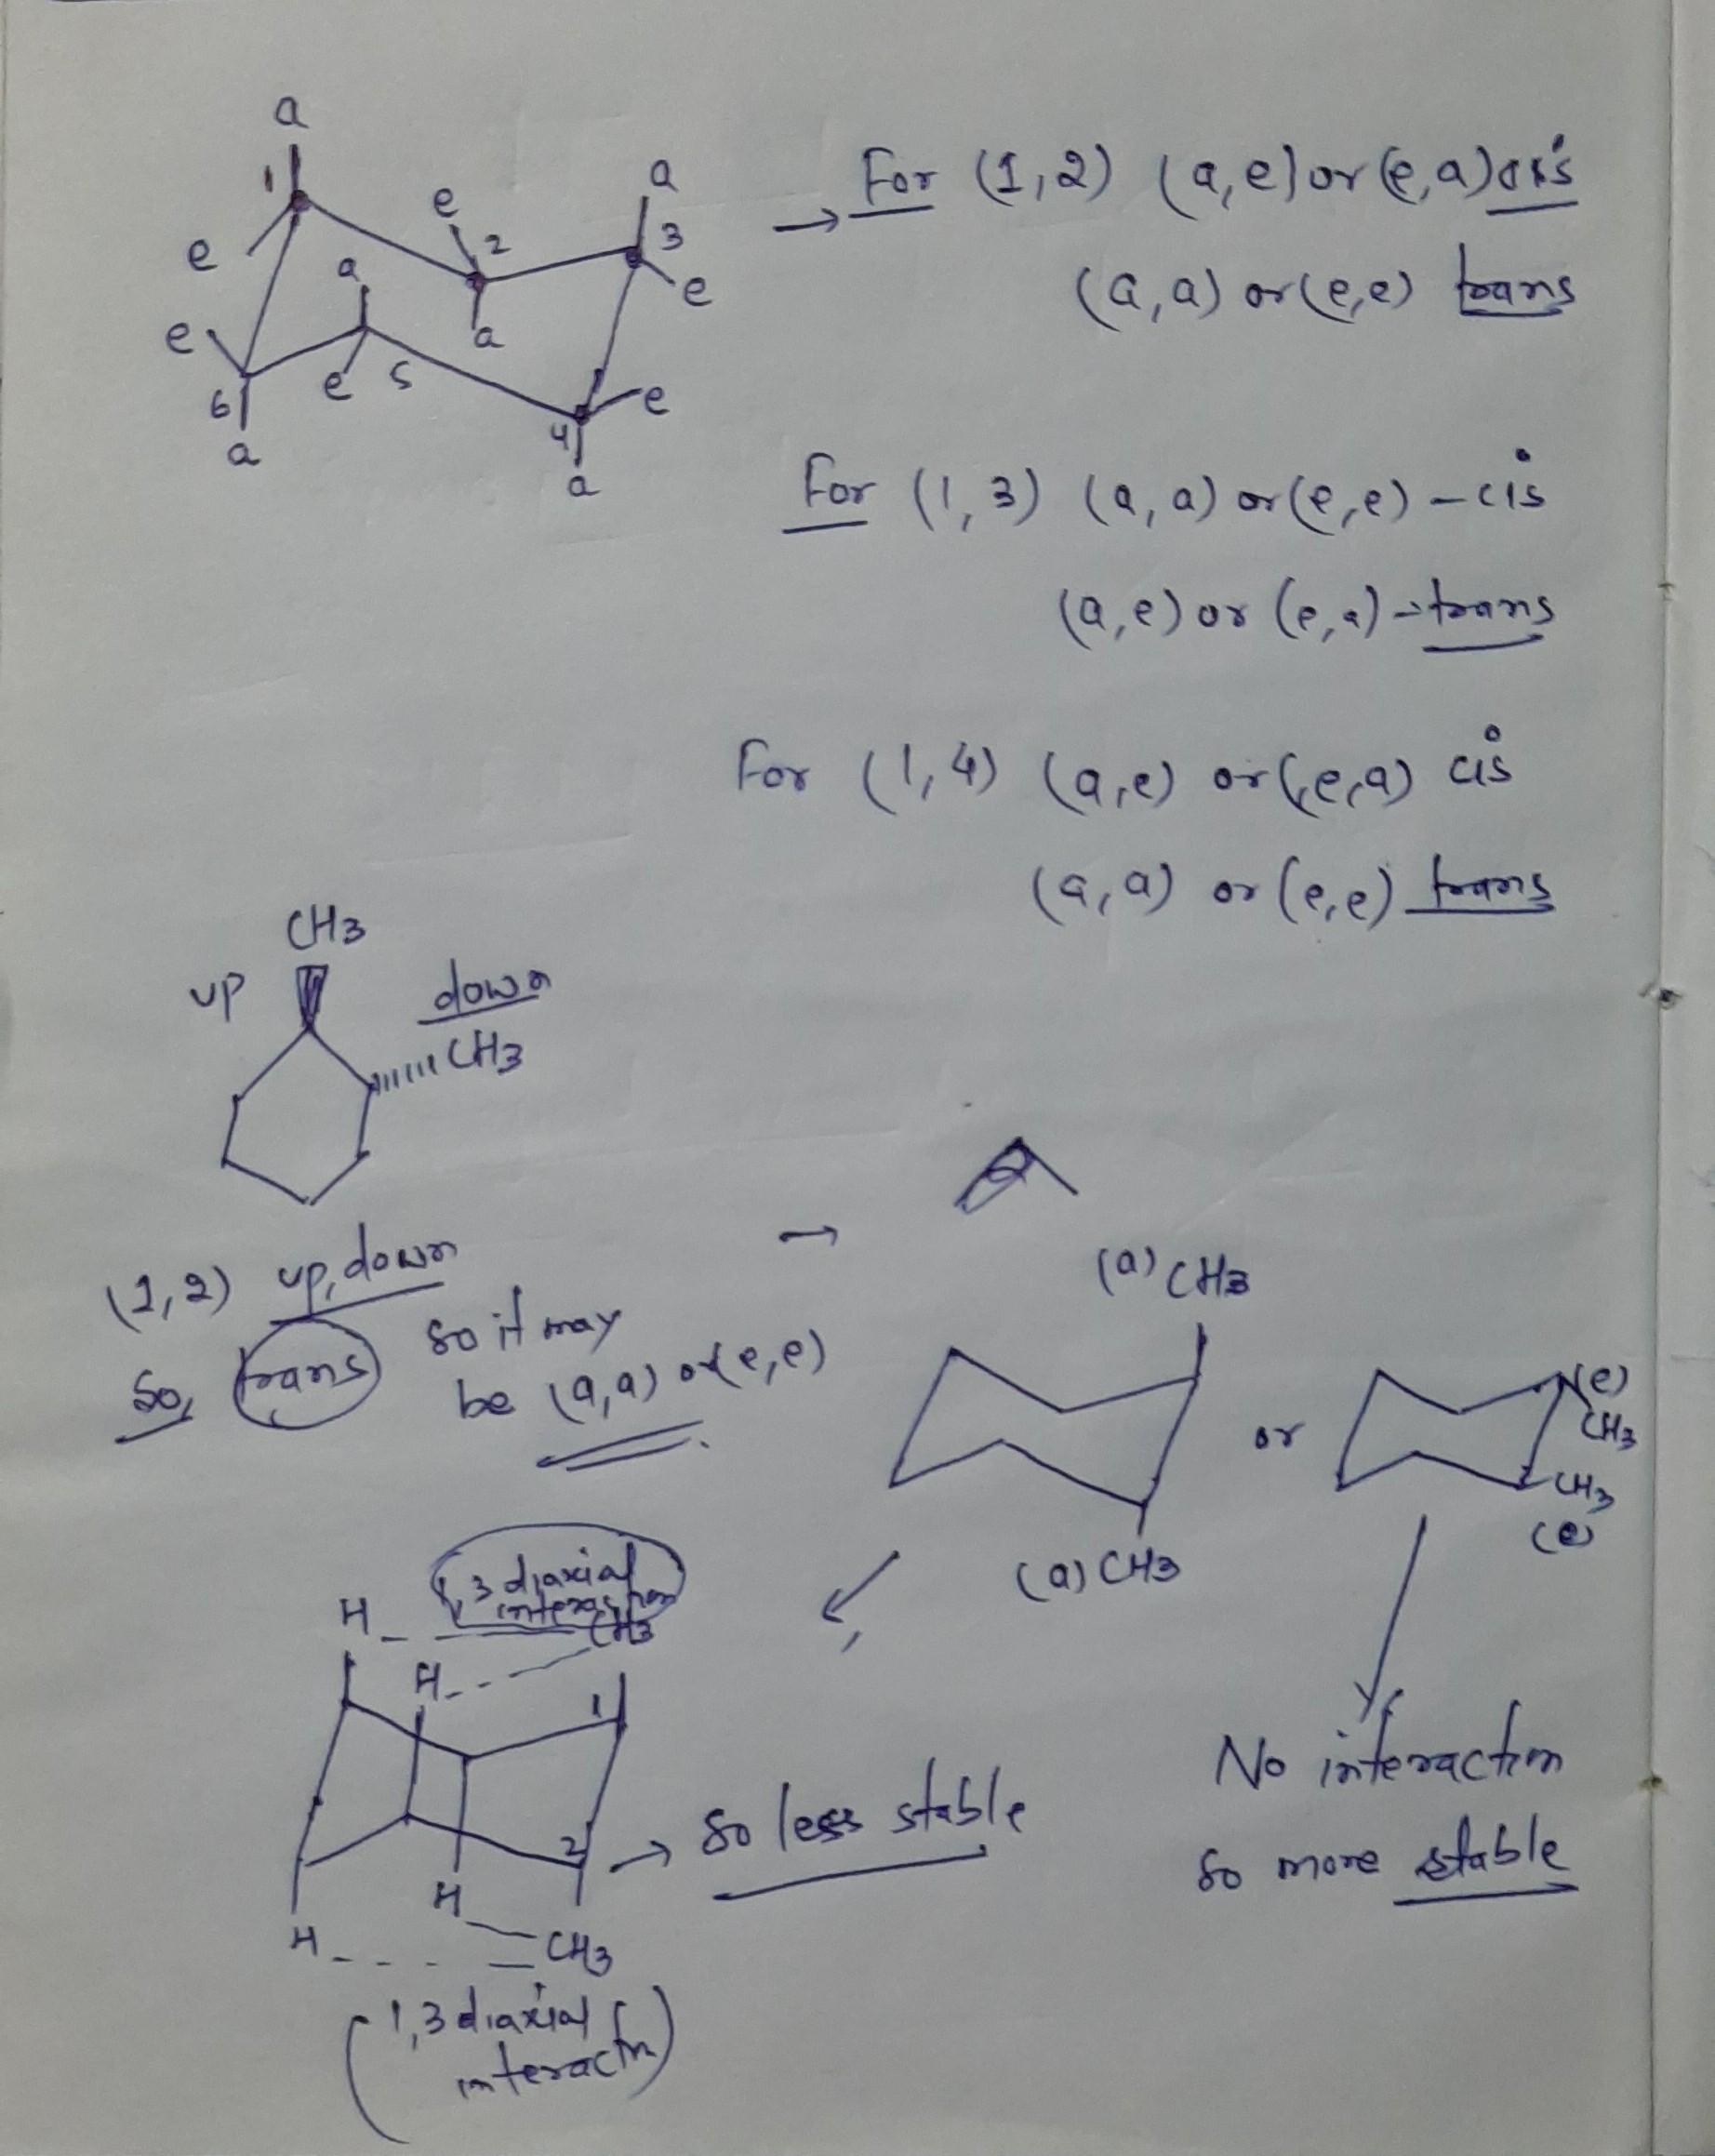 a
1
e
a
e
2
a
3
e
e
a
a
6
e
5
4
e
a
a
→ For (1,2) (a,e) or (e,a) cis
(a,a) or (e,e) trans
For (1,3) (a,a) or (e,e) - cis
(a,e) or (e,a) → trans
For (1,4) (a,e) or (e,a) cis
(a,a) or (e,e) trans
CH3
up
down
CH3
(1,2) up, down
So, trans so it may
be (a,a) or (e,e)
→
(a) CH3
(a) CH3
or
(e)
CH3
CH3
(e)
1,3 diaxial
interaction
H
CH3
H
1
2
H
H
CH3
(1,3 diaxial
interactn)
→ So less stable
No interaction
So more stable